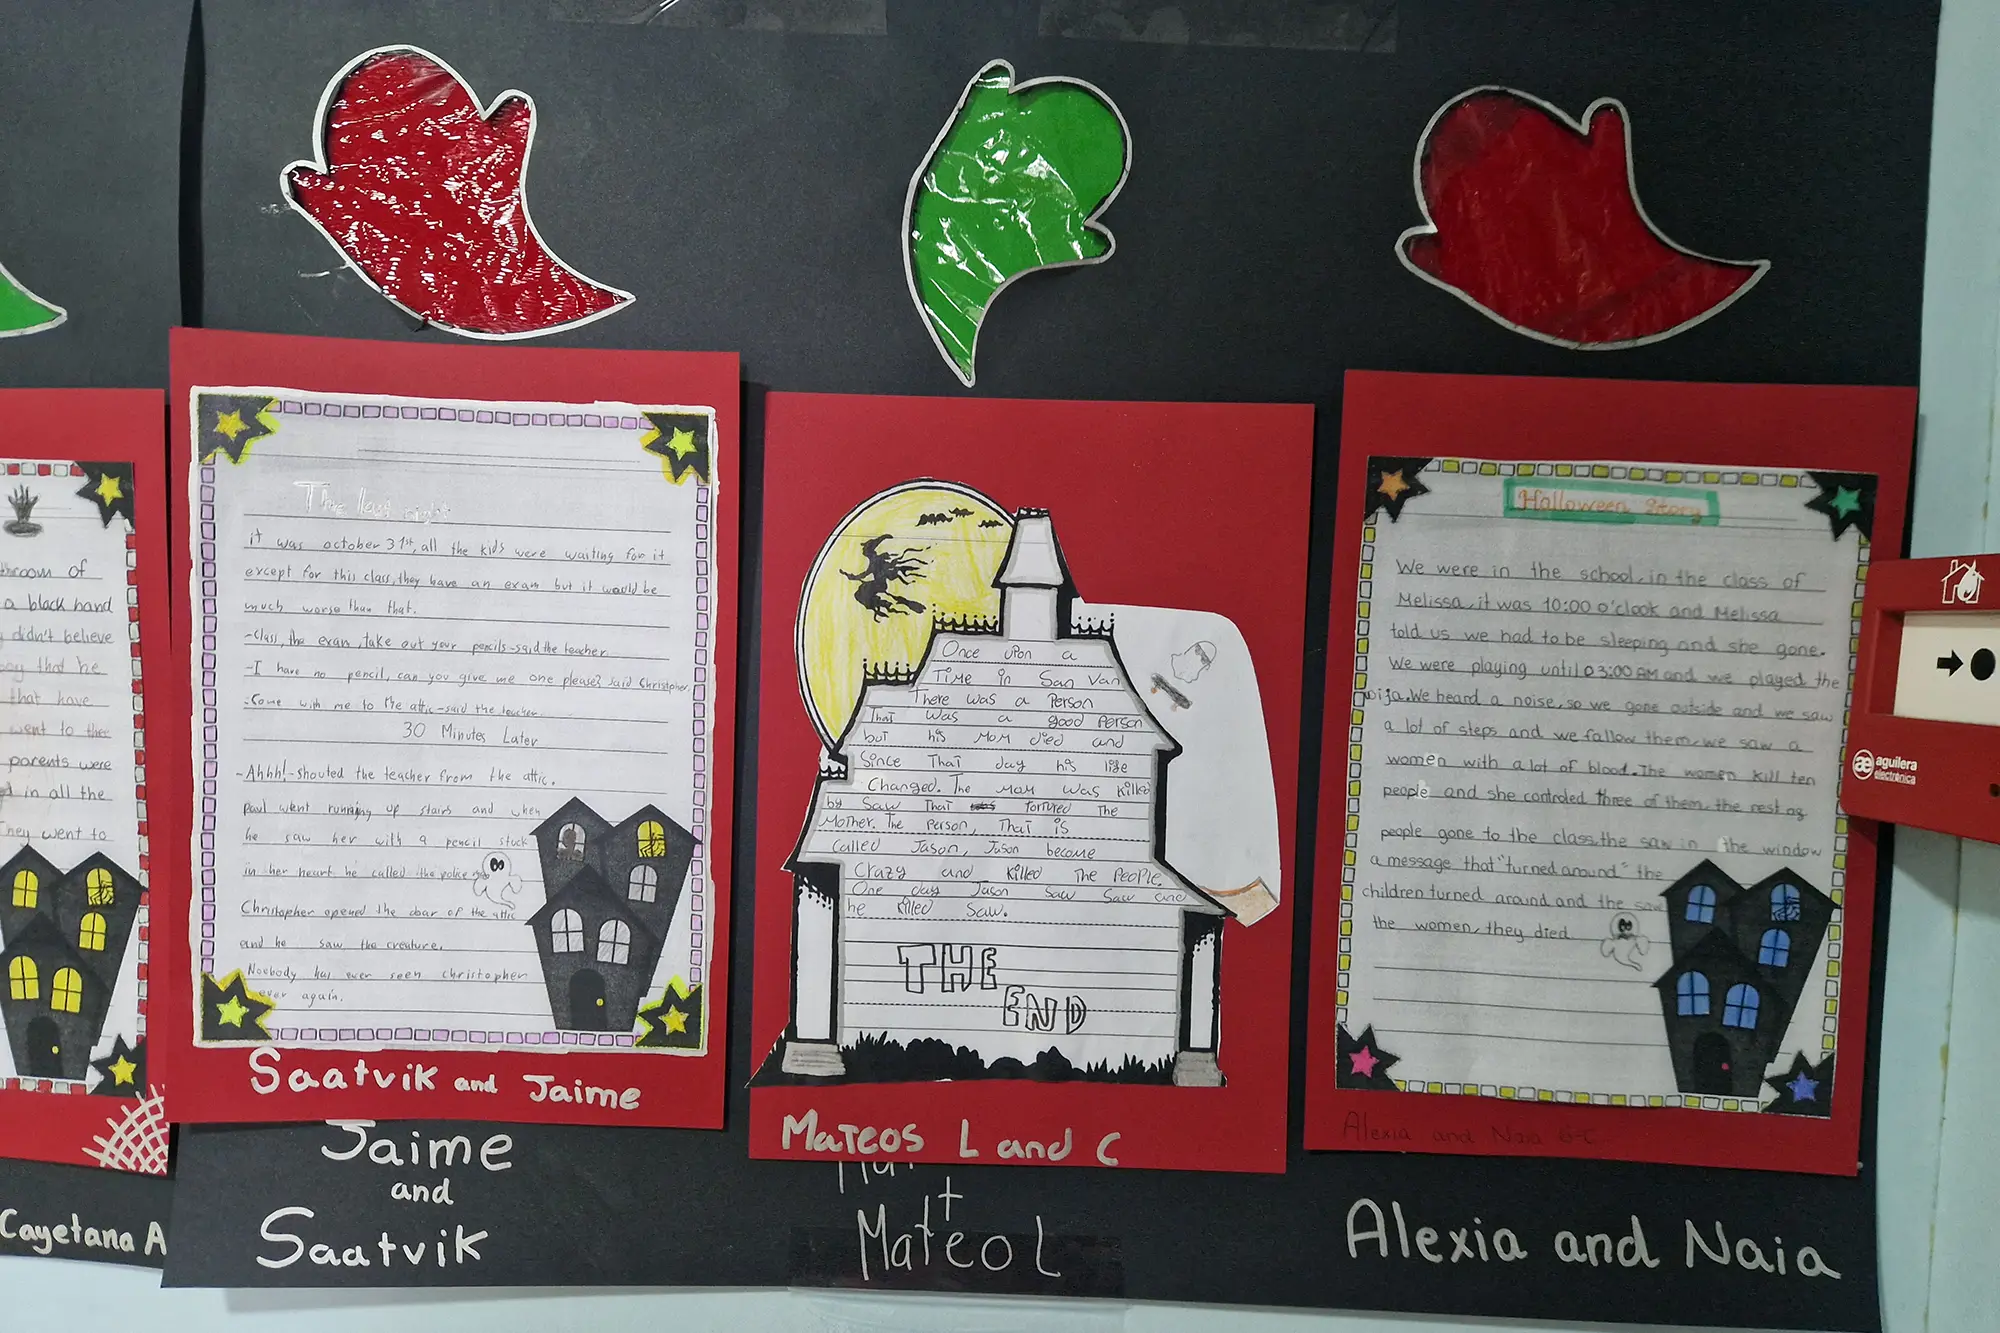 throom of
a black hand
didn't believe
that he
that have
went to the
parents were
in all the
They went to
Cayetana A
The last night
it was october 31st, all the kids were waiting for it
except for this class, they have an exam but it would be
much worse than that.
-Class, the exam, take out your pencils-said the teacher.
-I have no pencil, can you give me one please? said Christopher.
-Come with me to the attic-said the teacher.
30 Minutes Later
-Ahhh!-shouted the teacher from the attic.
paul went running up stairs and when
he saw her with a pencil stuck
in her heart he called the police
Christopher opened the doar of the attic
and he saw the creature.
Noobody has ever seen christopher
ever again.
Saatvik and Jaime
Jaime
and
Saatvik
Once upon a
Time in San Van
There was a Person
That was a good Person
but his Mom died and
Since That day his life
Changed. The Mom was killed
by Saw That tortured The
Mother. The Person, That is
Called Jason, Jason become
Crazy and killed The People.
One day Jason Saw Saw and
he killed Saw.
THE
END
Mateos L and C
+
Mateo L
Halloween Story
We were in the school, in the class of
Melissa, it was 10:00 o'clook and Melissa
told us we had to be sleeping and she gone.
We were playing until 03:00 AM and we played the
wija. We heard a noise, so we gone outside and we saw
a lot of steps and we follow them, we saw a
women with a lot of blood. The women kill ten
people and she controled three of them, the rest og
people gone to the class, the saw in the window
a message that "turned around" the
children turned around and the saw
the women, they died
Alexia and Naia 6ºC
Alexia and Naia
aguilera
electrónica